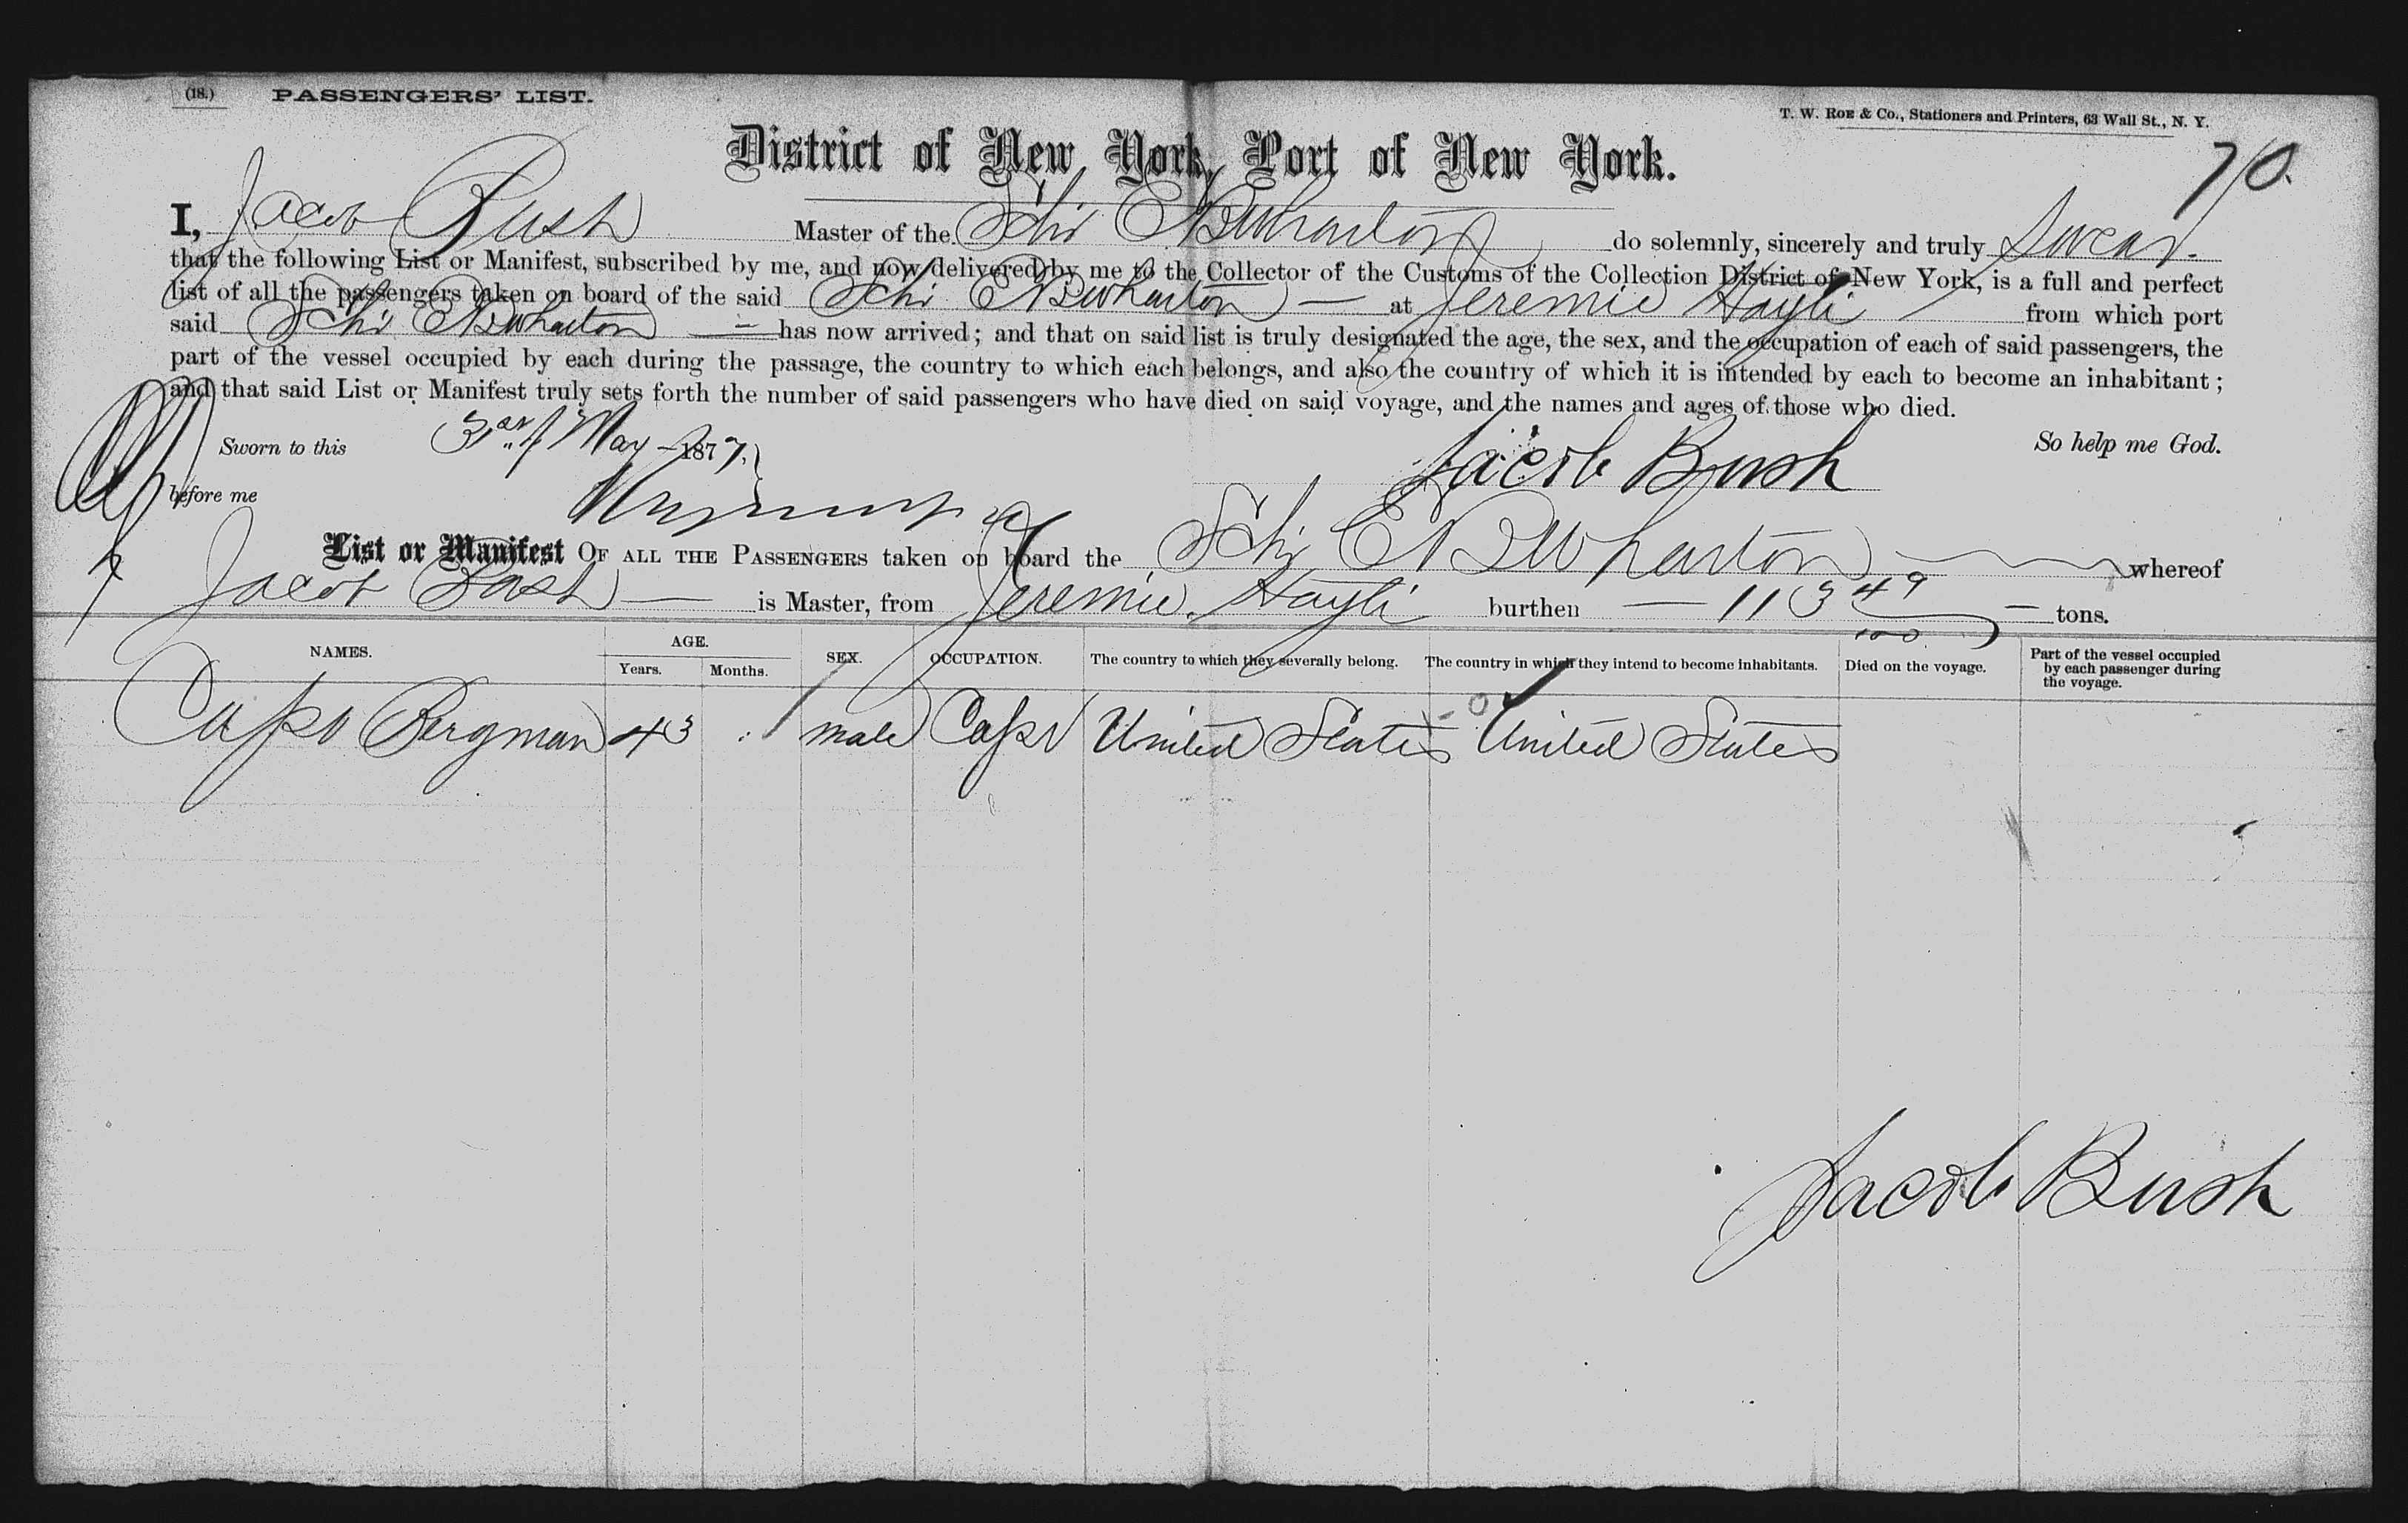 (18.) PASSENGERS' LIST.
T. W. Roe & Co., Stationers and Printers, 63 Wall St., N. Y.
District of New York, Port of New York.
710.
I, Jacob Bush Master of the Schr E N B Wharton do solemnly, sincerely and truly Swear.
that the following List or Manifest, subscribed by me, and now delivered by me to the Collector of the Customs of the Collection District of New York, is a full and perfect
list of all the passengers taken on board of the said Schr E N B Wharton — at Jeremie Hayti from which port
said Schr E N B Wharton — has now arrived; and that on said list is truly designated the age, the sex, and the occupation of each of said passengers, the
part of the vessel occupied by each during the passage, the country to which each belongs, and also the country of which it is intended by each to become an inhabitant;
and that said List or Manifest truly sets forth the number of said passengers who have died on said voyage, and the names and ages of those who died.
Sworn to this May 1877, So help me God.
Jacob Bush
before me
List or Manifest OF ALL THE PASSENGERS taken on board the Schr E N B Wharton whereof
Jacob Bush — is Master, from Jeremie. Hayti burthen — 113 49/100 — tons.
NAMES. AGE. Years. Months. SEX. OCCUPATION. The country to which they severally belong. The country in which they intend to become inhabitants. Died on the voyage. Part of the vessel occupied by each passenger during the voyage.
Capt Bergman 43 male Capt United States United States
Jacob Bush